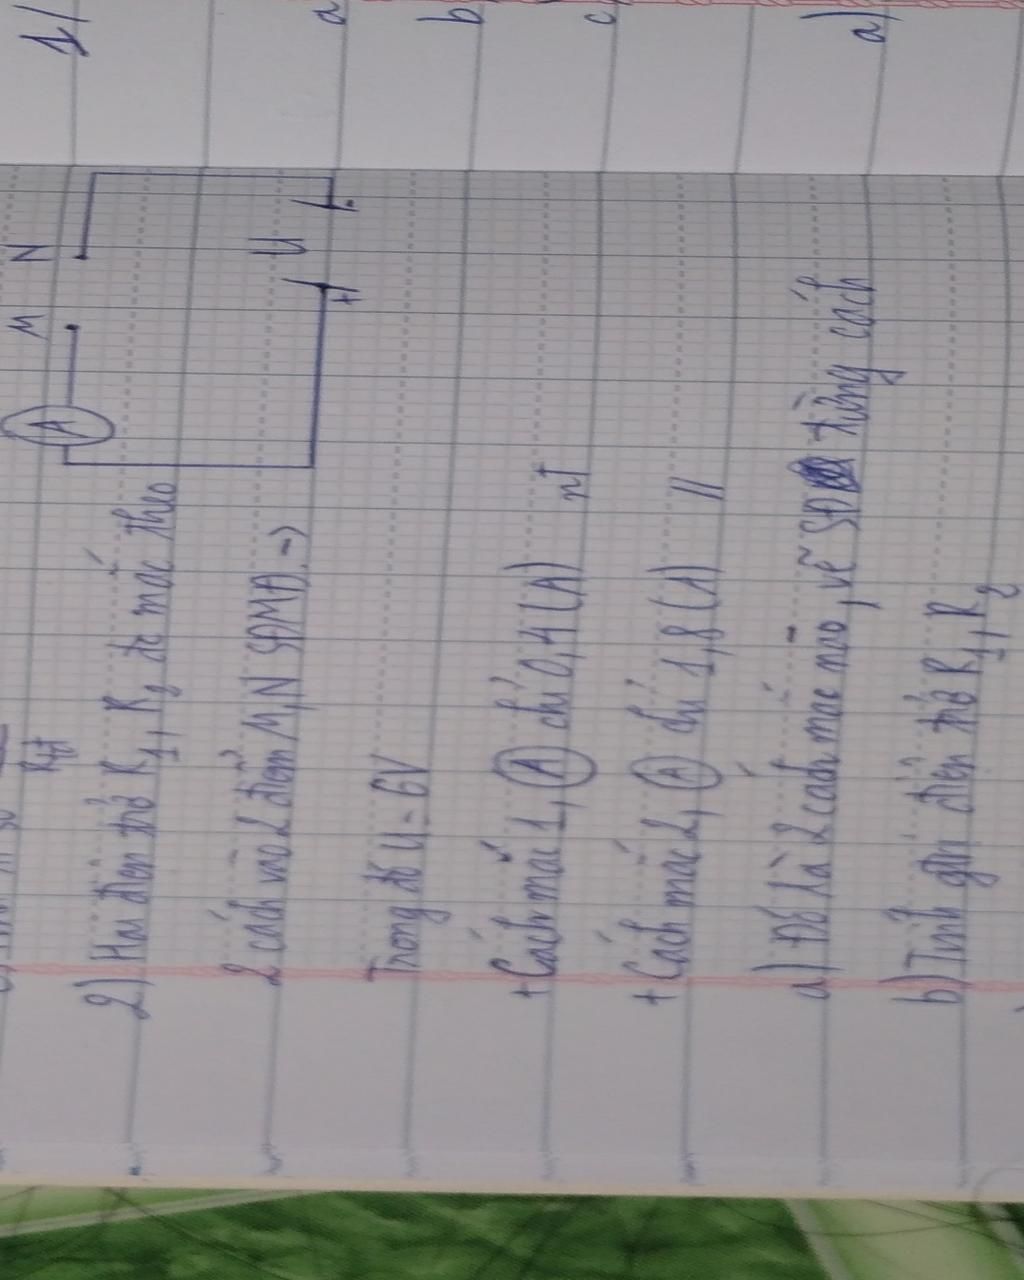 Rtđ
2) Hai điện trở R1, R2 đc mắc theo
2 cách vào 2 điểm M, N SĐMĐ →
Trong đó U = 6V
+ Cách mắc 1, (A) chỉ 0,4 (A) nt
+ Cách mắc 2, (A) chỉ 1,8 (A) //
a) Đó là 2 cách mắc nào, vẽ SĐ từng cách
b) Tính giá điện trở R1, R2
A
M N
+ U -
1/
a
b
c
a)